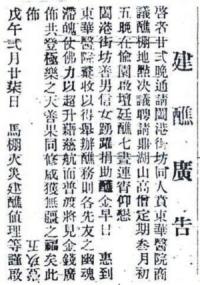 建醮廣告
啓者廿弍晚通請闔港街坊同人貲東華醫院商
議醮棚地點决議聘請鼎湖山高僧定期叁月初
五晚在愉園啟壇廷醮七晝連宵仰懇
闔港街坊善男信女踴躍捐助醮金早日 惠到
東華醫院彙收以得舉辦醮務則各先友之幽魂
滯魄仗佛力以超升藉慈航而普渡將見金錢廣
佈共登極樂之天善果同修咸獲無疆之福矣此
佈
戊午弍月廿柒日 馬棚火災建醮值理等謹啟